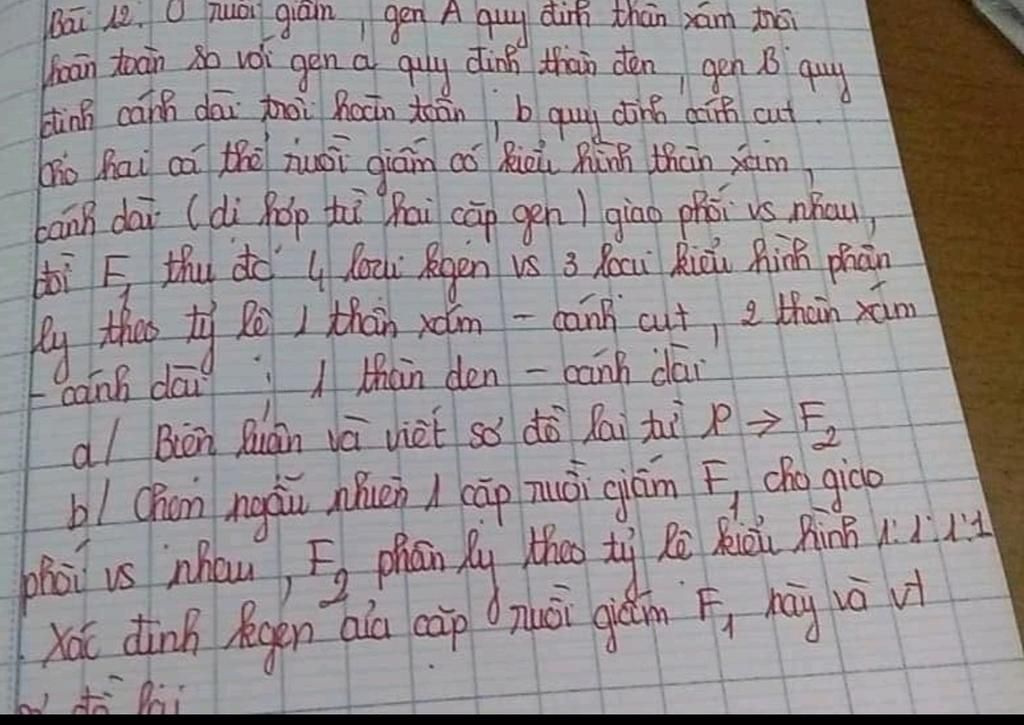 Bài 12. Ở ruồi giấm, gen A quy định thân xám trội
hoàn toàn so với gen a quy định thân đen, gen B quy
định cánh dài trội hoàn toàn, b quy định cánh cụt.
Cho hai cá thể ruồi giấm có kiểu hình thân xám,
cánh dài (dị hợp tử hai cặp gen) giao phối vs nhau,
đời F1 thu đc 4 loại kgen vs 3 loại kiểu hình phân
ly theo tỷ lệ 1 thân xám - cánh cụt, 2 thân xám
- cánh dài : 1 thân đen - cánh dài
a/ Biện luận và viết sơ đồ lai từ P → F2
b/ Chọn ngẫu nhiên 1 cặp ruồi giấm F1 cho giao
phối vs nhau, F2 phân ly theo tỷ lệ kiểu hình 1:1:1:1
Xác định kgen của cặp ruồi giấm F1 này và vt
sơ đồ lai